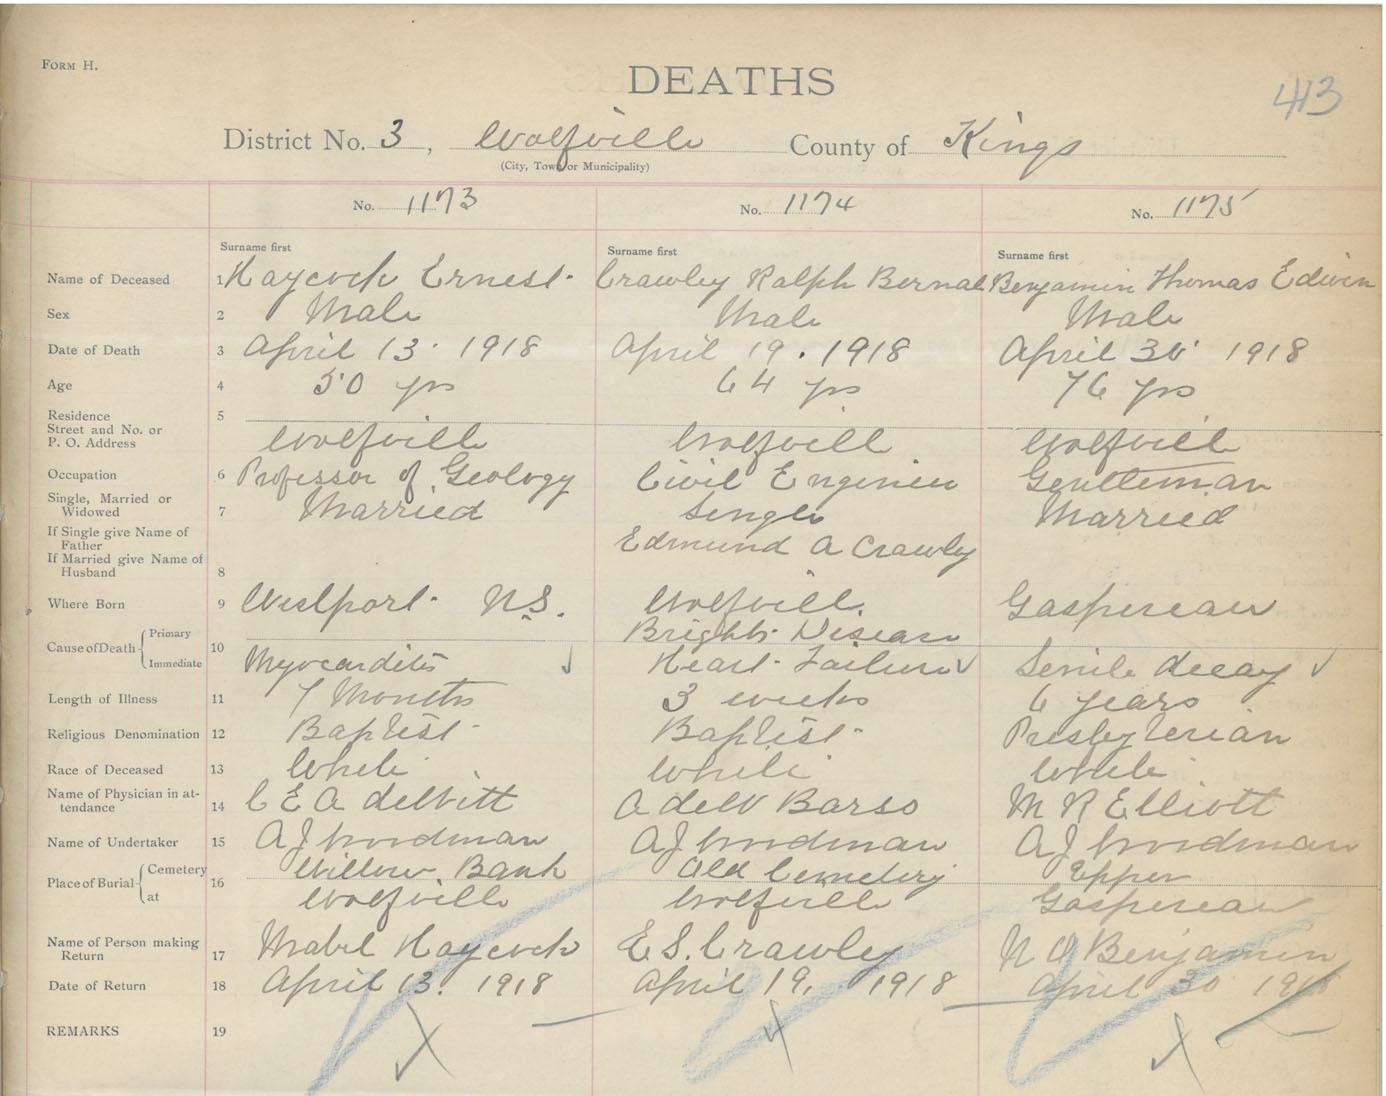 FORM H.
DEATHS
413
District No. 3, Wolfville County of Kings
(City, Town or Municipality)
No. 1173 No. 1174 No. 1175
Surname first Surname first Surname first
Name of Deceased 1 Haycock Ernest Crawley Ralph Bernal Benjamin Thomas Edwin
Sex 2 Male Male Male
Date of Death 3 April 13. 1918 April 19. 1918 April 30 1918
Age 4 50 yrs 64 yrs 76 yrs
Residence 5
Street and No. or
P. O. Address Wolfville Wolfville Wolfville
Occupation 6 Professor of Geology Civil Engineer Gentleman
Single, Married or
Widowed 7 Married Single Married
If Single give Name of
Father Edmund A Crawley
If Married give Name of
Husband 8
Where Born 9 Westport N.S. Wolfville. Gaspereau
Cause of Death Primary 10 Brights Disease
Immediate Myocarditis Heart Failure Senile decay
Length of Illness 11 7 Months 3 weeks 6 years
Religious Denomination 12 Baptist Baptist Presbyterian
Race of Deceased 13 White White White
Name of Physician in at-
tendance 14 C E A deWitt A deW Barss M R Elliott
Name of Undertaker 15 A J Woodman A J Woodman A J Woodman
Place of Burial Cemetery 16 Willow Bank Old Cemetery Upper
at Wolfville Wolfville Gaspereau
Name of Person making
Return 17 Mabel Haycock E. S. Crawley Benjamin
Date of Return 18 April 13. 1918 April 19, 1918 April 30 1918
REMARKS 19